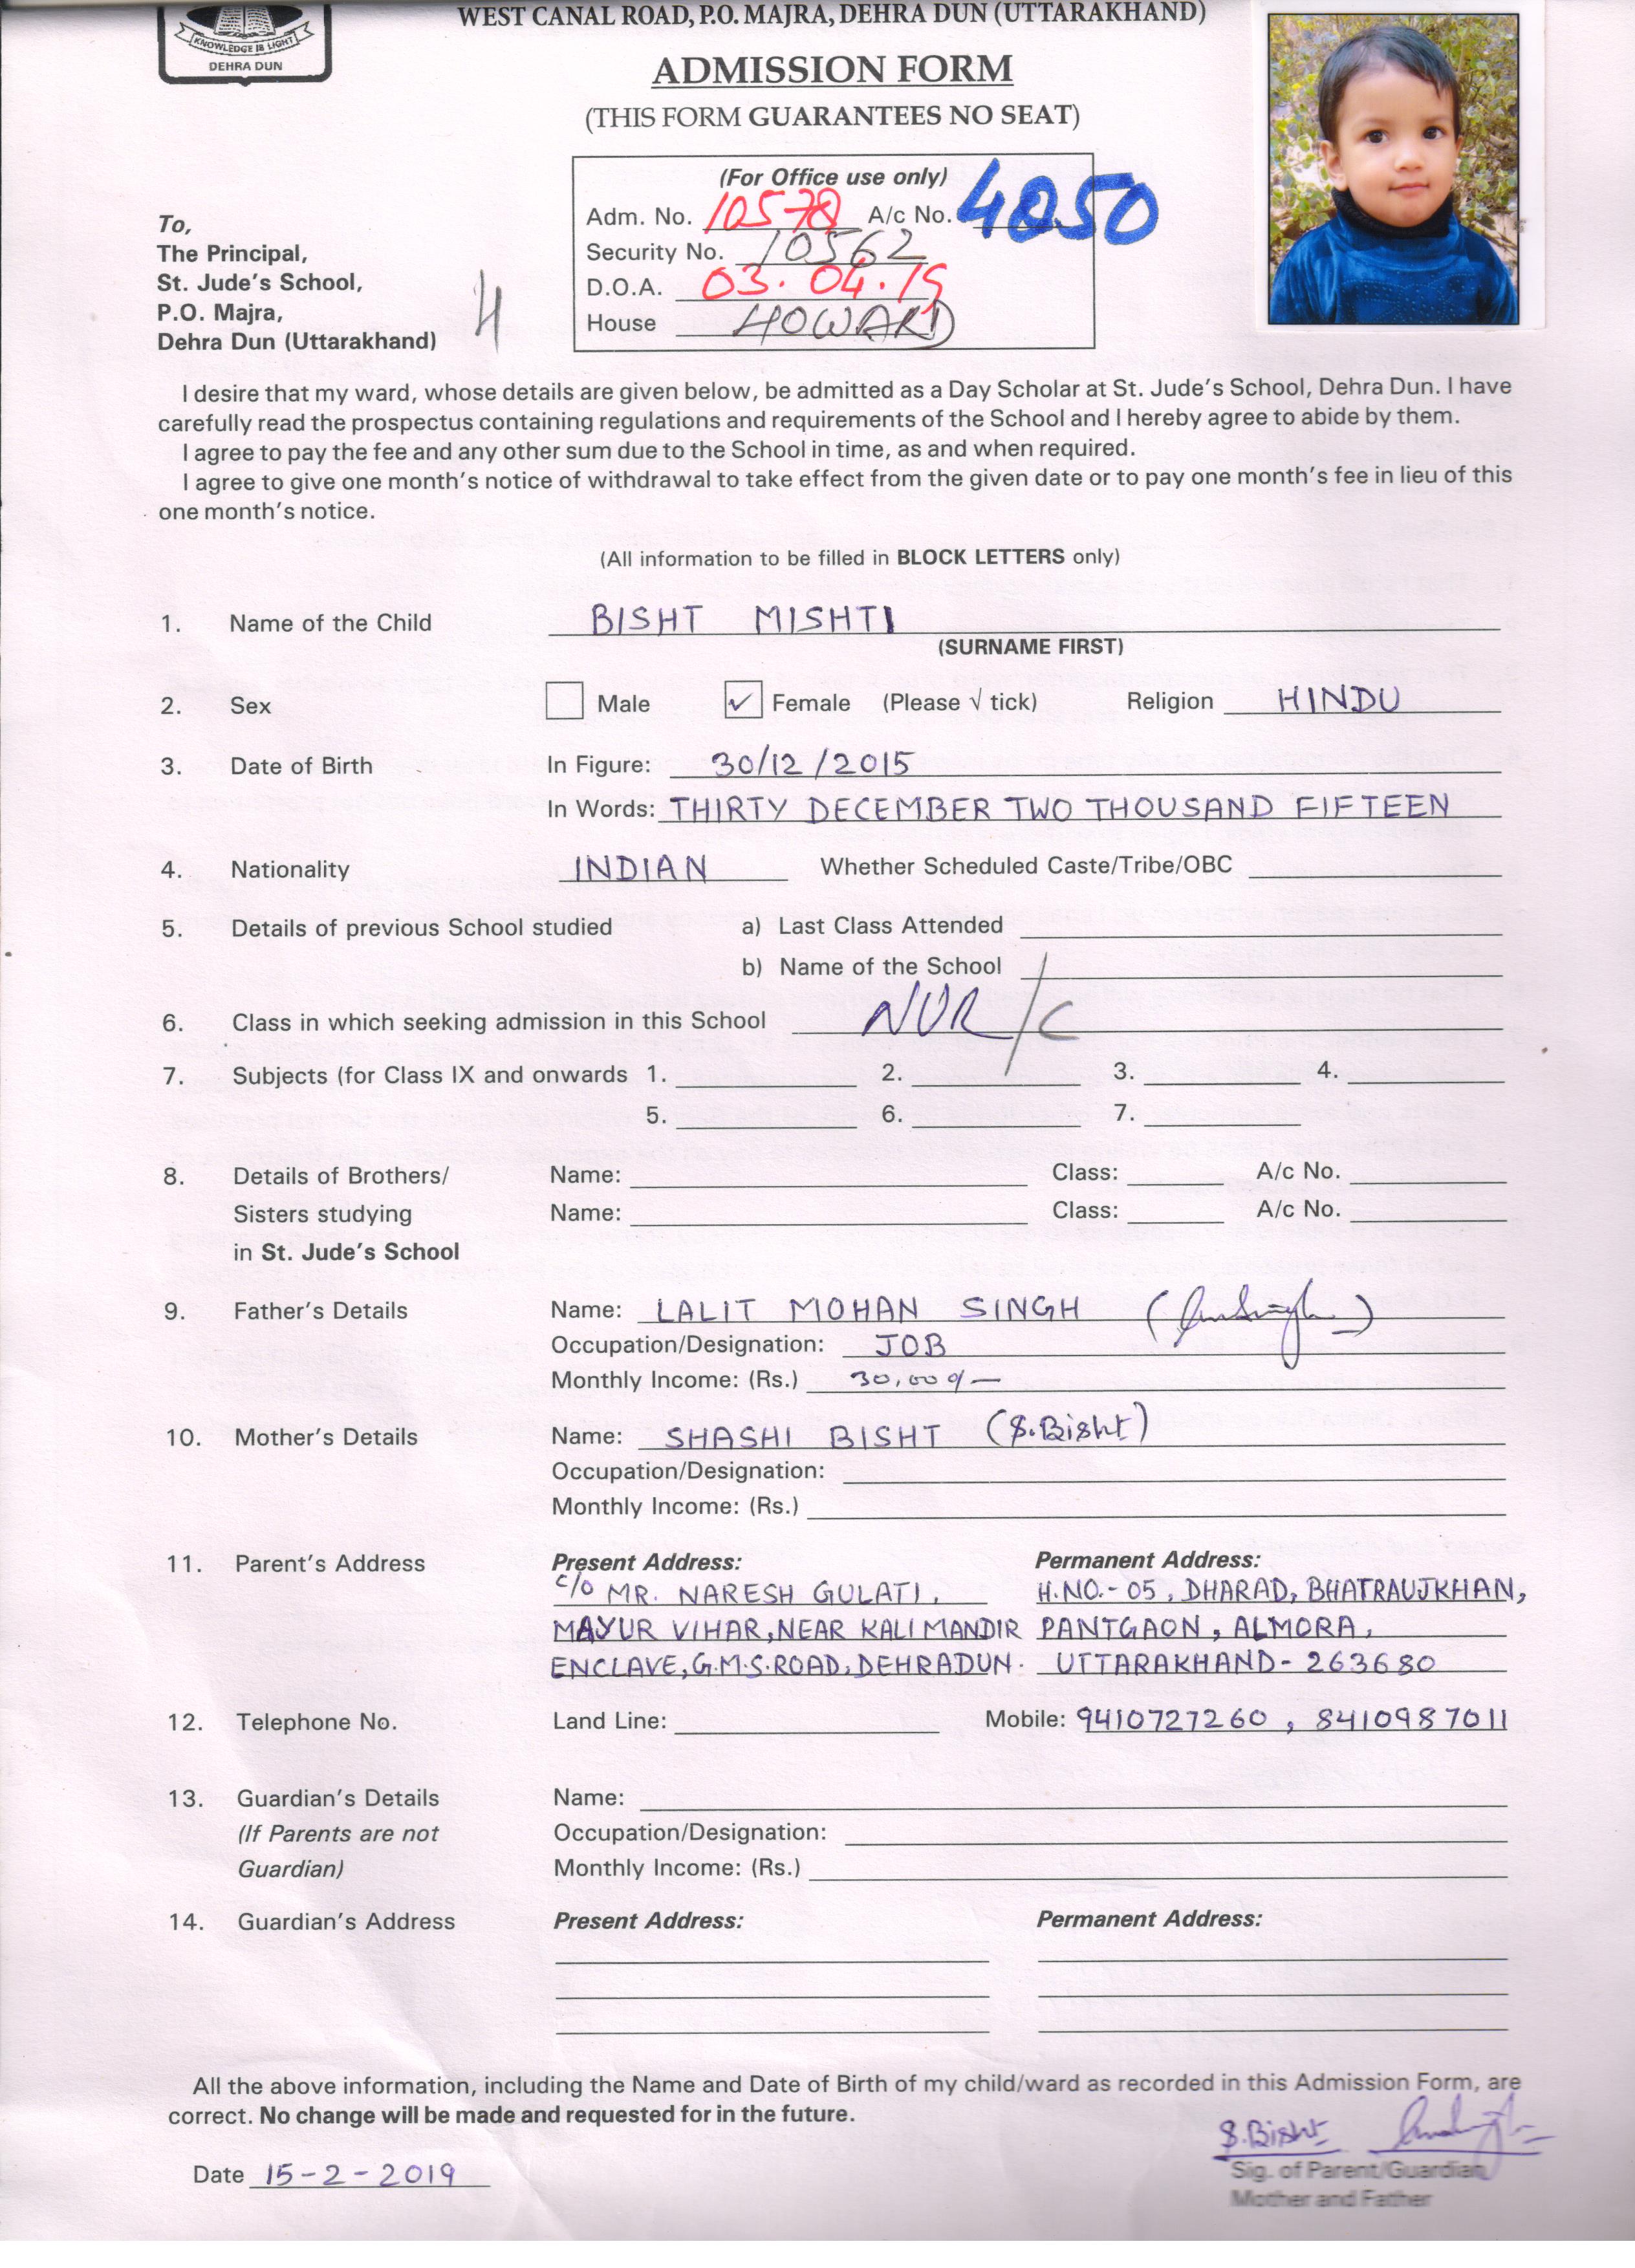 WEST CANAL ROAD, P.O. MAJRA, DEHRA DUN (UTTARAKHAND)
KNOWLEDGE IS LIGHT
DEHRA DUN
ADMISSION FORM
(THIS FORM GUARANTEES NO SEAT)
(For Office use only)
Adm. No. 10578 A/c No. 4850
Security No. 10562
D.O.A. 03.04.19
House HOWARD
To,
The Principal,
St. Jude's School,
P.O. Majra,
Dehra Dun (Uttarakhand)
I desire that my ward, whose details are given below, be admitted as a Day Scholar at St. Jude's School, Dehra Dun. I have
carefully read the prospectus containing regulations and requirements of the School and I hereby agree to abide by them.
I agree to pay the fee and any other sum due to the School in time, as and when required.
I agree to give one month's notice of withdrawal to take effect from the given date or to pay one month's fee in lieu of this
one month's notice.
(All information to be filled in BLOCK LETTERS only)
1. Name of the Child BISHT MISHTI
(SURNAME FIRST)
2. Sex Male ✓ Female (Please √ tick) Religion HINDU
3. Date of Birth In Figure: 30/12/2015
In Words: THIRTY DECEMBER TWO THOUSAND FIFTEEN
4. Nationality INDIAN Whether Scheduled Caste/Tribe/OBC
5. Details of previous School studied a) Last Class Attended
b) Name of the School
6. Class in which seeking admission in this School NUR/C
7. Subjects (for Class IX and onwards 1. 2. 3. 4.
5. 6. 7.
8. Details of Brothers/ Name: Class: A/c No.
Sisters studying Name: Class: A/c No.
in St. Jude's School
9. Father's Details Name: LALIT MOHAN SINGH
Occupation/Designation: JOB
Monthly Income: (Rs.) 30,000/-
10. Mother's Details Name: SHASHI BISHT (S.Bisht)
Occupation/Designation:
Monthly Income: (Rs.)
11. Parent's Address Present Address: Permanent Address:
C/O MR. NARESH GULATI, H.NO.-05, DHARAD, BHATRAUJKHAN,
MAYUR VIHAR, NEAR KALI MANDIR PANTGAON, ALMORA,
ENCLAVE, G.M.S. ROAD, DEHRADUN. UTTARAKHAND-263680
12. Telephone No. Land Line: Mobile: 9410727260, 8410987011
13. Guardian's Details Name:
(If Parents are not Occupation/Designation:
Guardian) Monthly Income: (Rs.)
14. Guardian's Address Present Address: Permanent Address:
All the above information, including the Name and Date of Birth of my child/ward as recorded in this Admission Form, are
correct. No change will be made and requested for in the future.
S.Bisht
Date 15-2-2019 Sig. of Parent/Guardian
Mother and Father